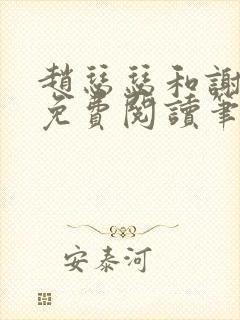 趙瑟瑟和謝
免費閱讀筆
安泰河